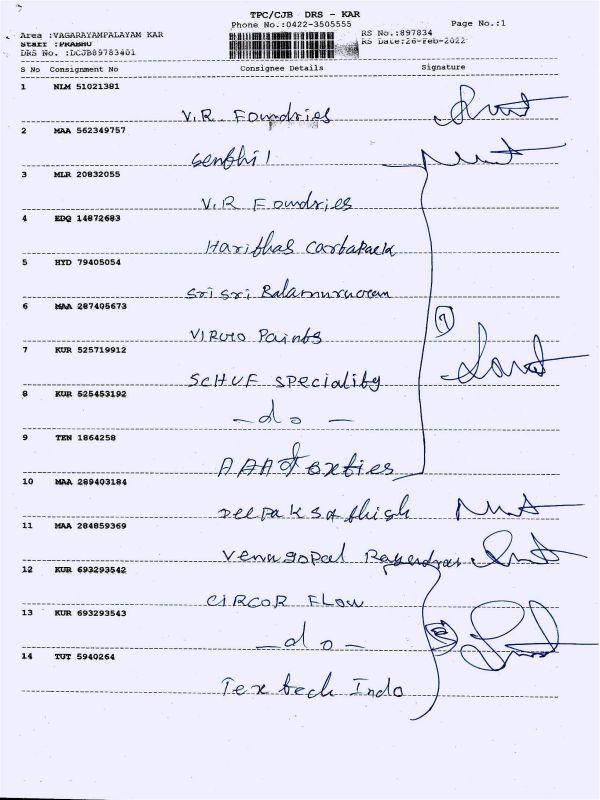 TPC/CJB DRS - KAR
Phone No.:0422-3505555 Page No.:1
Area :VAGARAYAMPALAYAM KAR RS No.:897834
Staff :PRABHU RS Date:26-Feb-2022
DRS No. :DCJB89783401
S No Consignment No Consignee Details Signature
1 NLM 51021381
V.R. Foundries
2 MAA 562349757
Senthil
3 MLR 20832055
V.R Foundries
4 EDQ 14872683
Harithas
5 HYD 79405054
Sri Sri Balamurugan
6 MAA 287405673
Paints
7 KUR 525719912
SCHUF Speciality
8 KUR 525453192
— do —
9 TEN 1864258
10 MAA 289403184
Deepak Sathish
11 MAA 284859369
Venugopal Rajendran
12 KUR 693293542
CIRCOR FLOW
13 KUR 693293543
— do —
14 TUT 5940264
Tex tech Indo